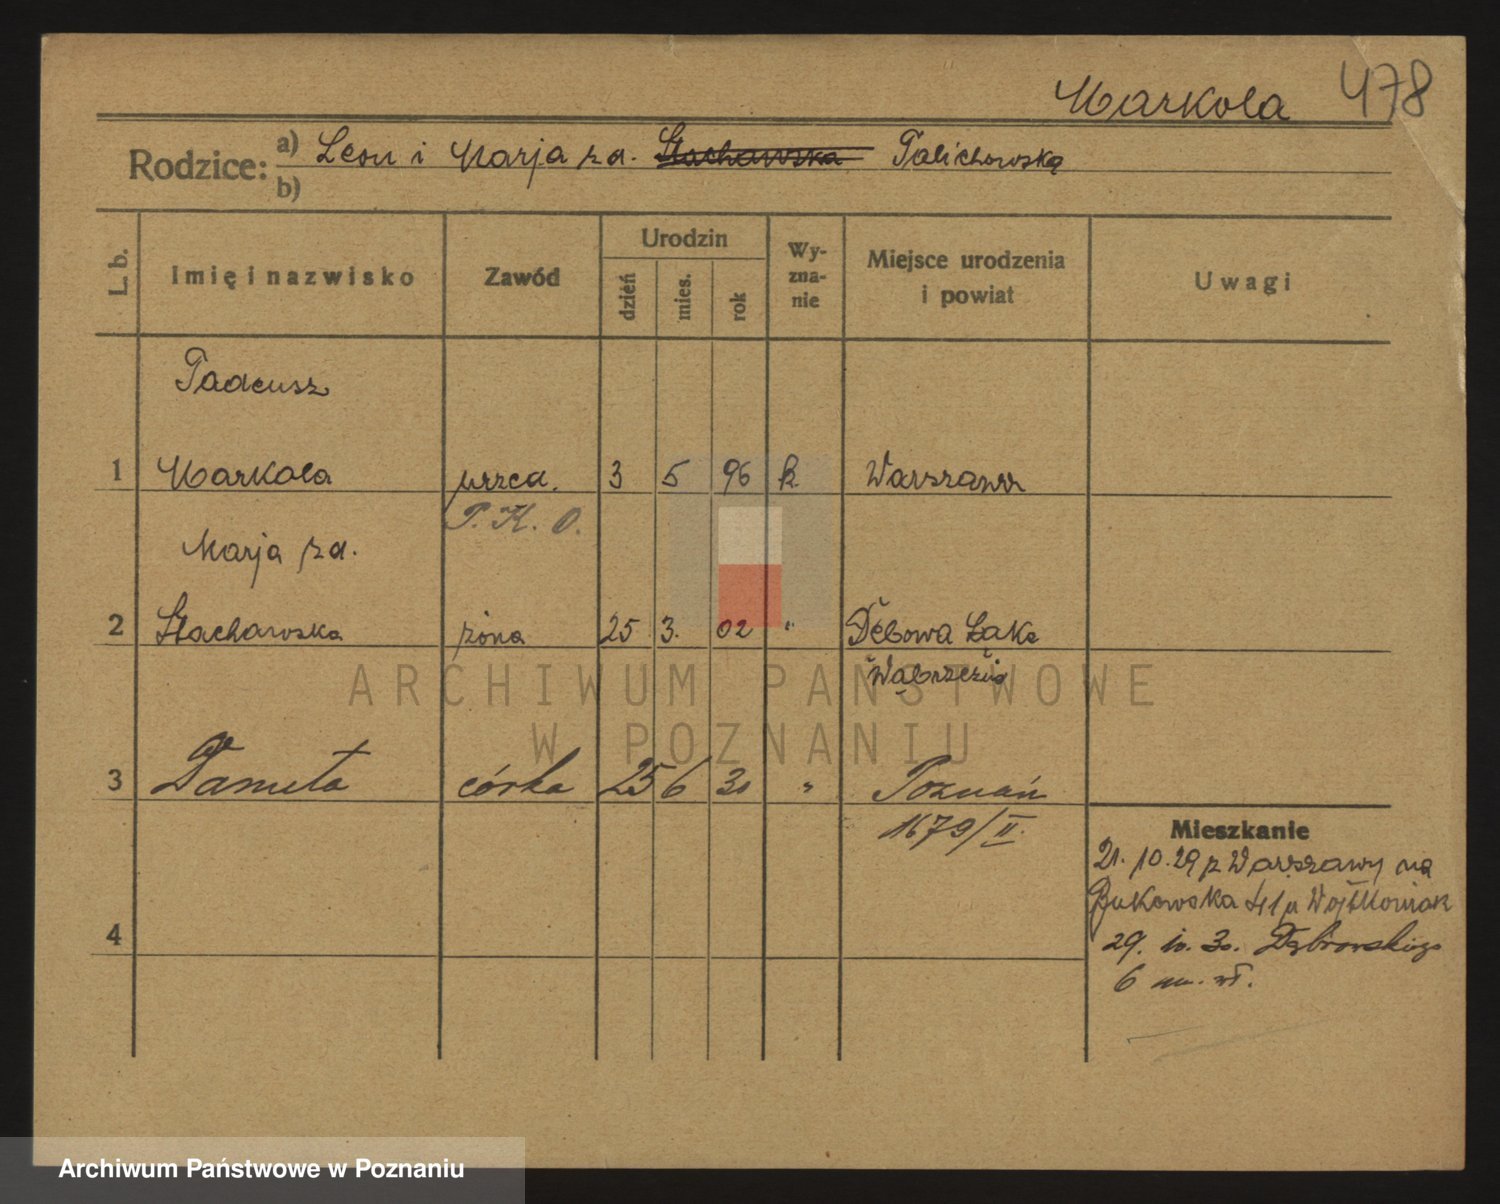 Markola 478
Rodzice: a) Leon i Marja zd. Stachowska Talichowską
b)
L. b. Imię i nazwisko Zawód Urodzin dzień mies. rok Wyzna-nie Miejsce urodzenia i powiat Uwagi
Tadeusz
1 Markola urzęd. 3 5 96 k. Warszawa
P. K. O.
Marja zd.
2 Stachowska żona 25 3. 02 " Dębowa Łąka
Wąbrzeźno
ARCHIWUM PAŃSTWOWE
W POZNANIU
3 Danuta córka 25 6 30 " Poznań
1679/II.
Mieszkanie
21. 10. 29 z Warszawy na
Bukowska 41 u Wojtkowiak
4
29. 10. 30. Dąbrowskiego
6 m. wł.
Archiwum Państwowe w Poznaniu